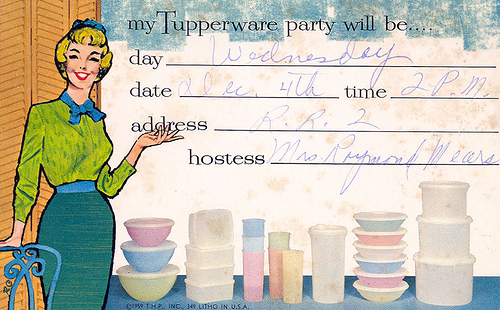 my Tupperware party will be....
day Wednesday
date Dec. 4th time 2 P.M.
address R.R. 2
hostess Mrs Raymond Mears
©1959 T.H.P., INC., 349 LITHO IN U.S.A.